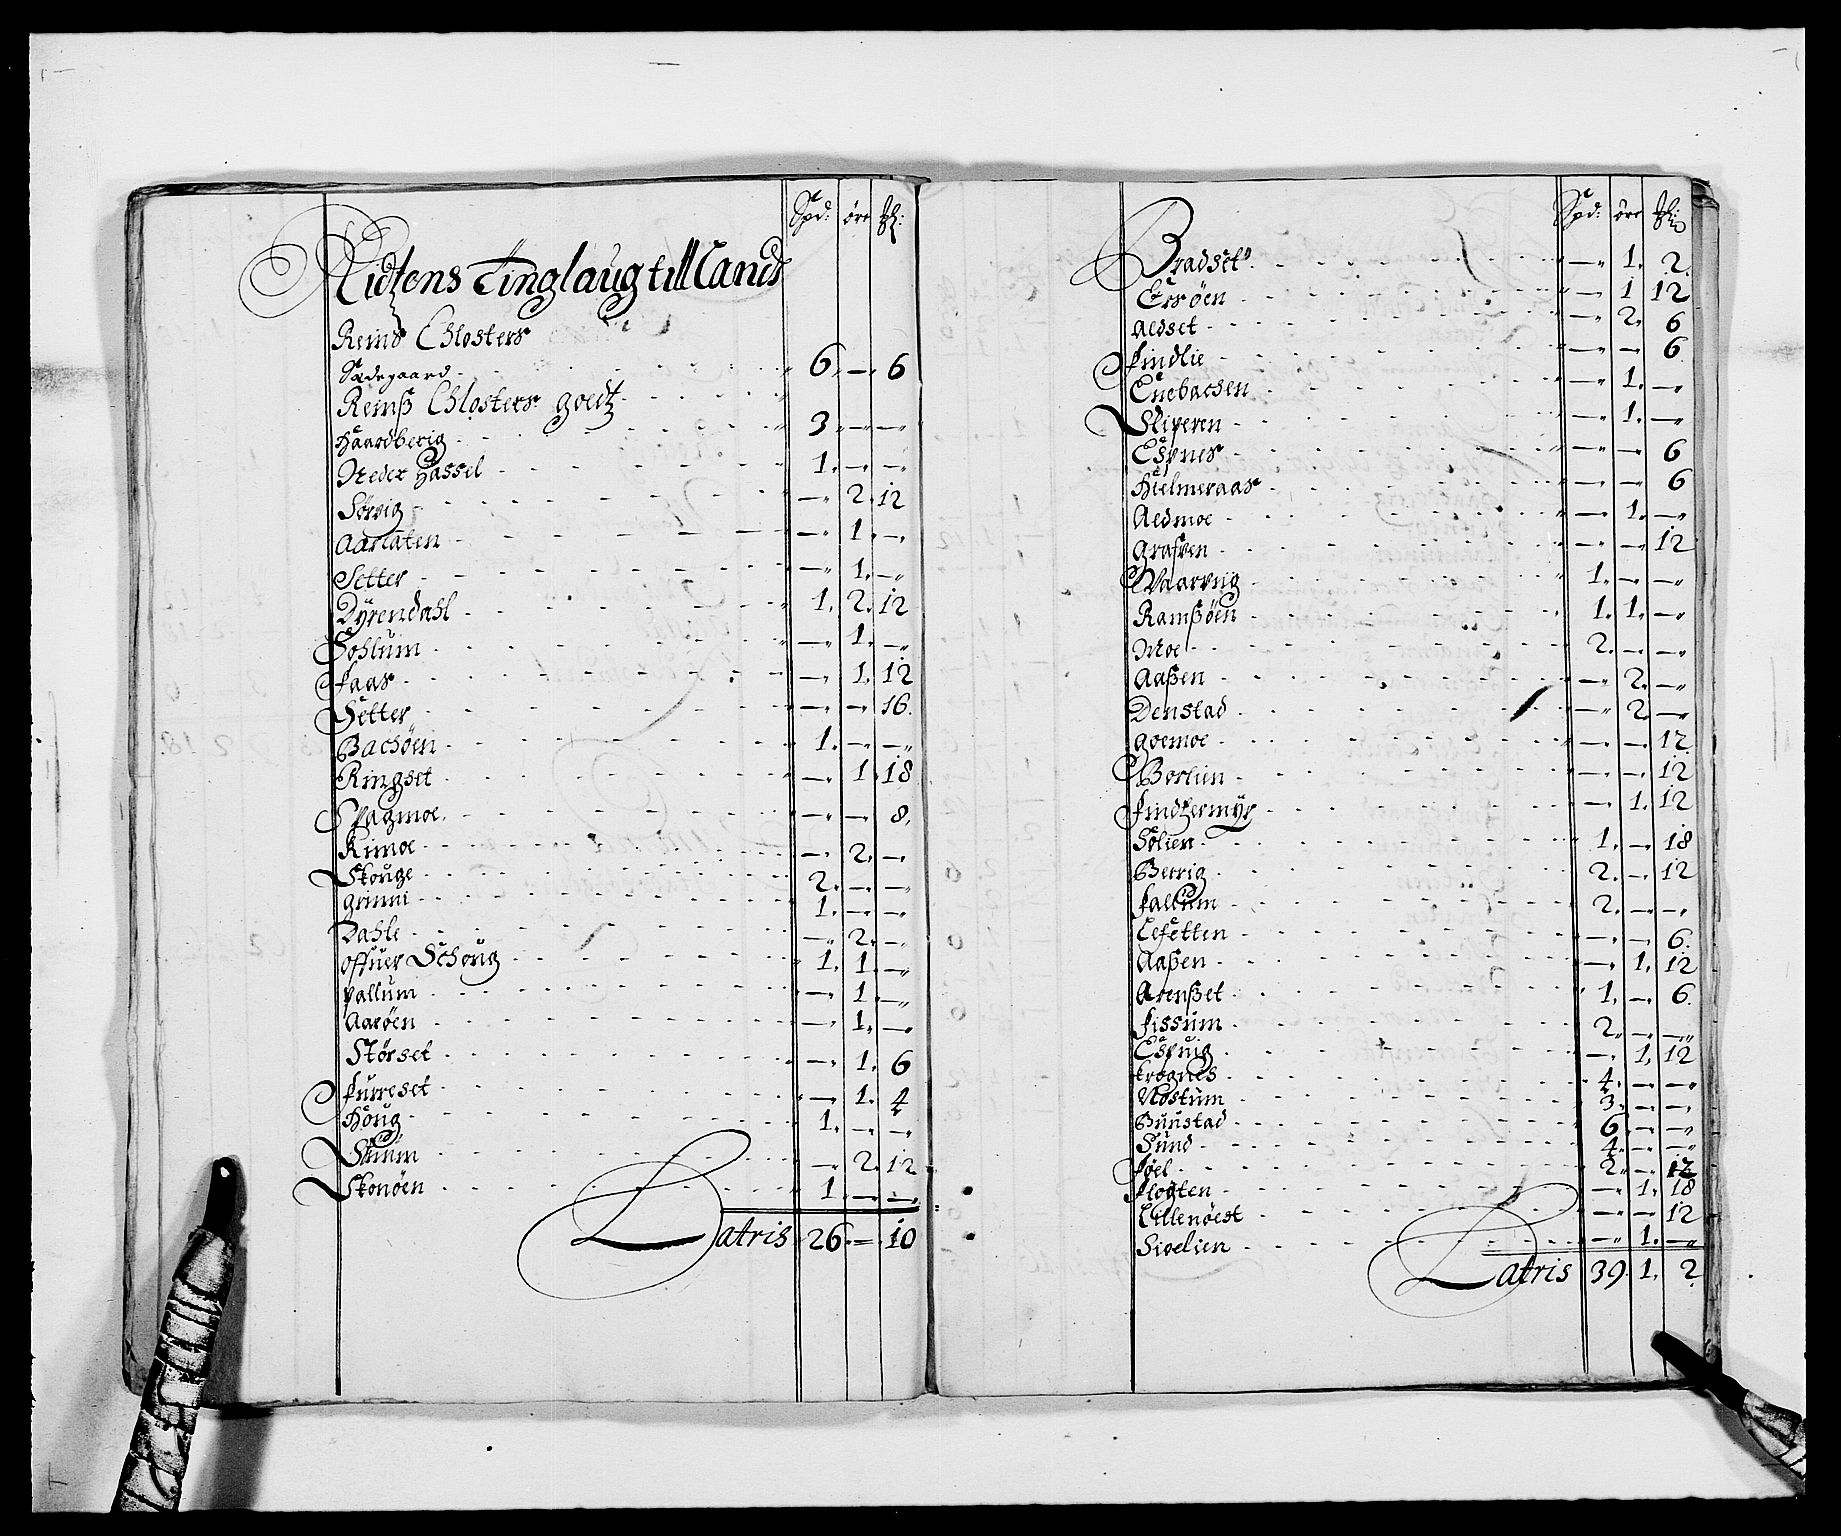 Spd: öre
Tinglaug till Lands
Reins Chlosters
Sædegaard - 6. — 6
Reinß Chlosters goedtz
Haardberig 3 — —
Neder Hassel 1. — —
Sørvig — 2. 12
Aarlaten — 1. —
Setter — 1. —
Dÿrendahl 1. 2. 12
Sohlum — 1. —
faas — 1. 12
Setter — — 16.
Bachöen 1. — —
Ringset — 1. 18
Vagmoe — — 8.
Rimoe — 2. —
Skouge 2. — —
grinni 1. — —
Dahle — 2. —
offuer Schoug 1. 1. —
vallum — 1. —
Aaröen — 1. —
Störset — 1. 6
furreset — 1. 4
Houg 1. — —
— 2. 12
Skonöen 1. — —
Latris 26. — 10
Spd: öre
Bradset — 1. 2.
Ersöen — 1 12
Aldset — 2. 6
findlie — — 6.
Enebachen — 1. —
Sliperen — 1. —
Espnes — — 6
Hielmeraas — — 6
Aldmoe — 1. —
grafven — — 12
Vaarvug 1. — —
Ramßöen 1. 1. —
Moe 2. — —
Aaßen — 2. —
Denstad — 2. —
goemoe — — 12
Borlien — — 12
findzermÿr — 1. 12
Sölien 1. — 18
Berrig 2. — 12
fallum 2. — —
Lefetten — — 6.
Aaßen — 1. 12
Arenßet 1. — 6.
fissum 2. — —
Espuig — 1. 12
krognes 4. — —
Nostum 3. — —
Buustad 6. — —
Sund 4. — —
föel 2. — 12
flogten — 1. 18
Lillenöest — — 12
Sivelien — 1. —
Latris 39. 1. 2.